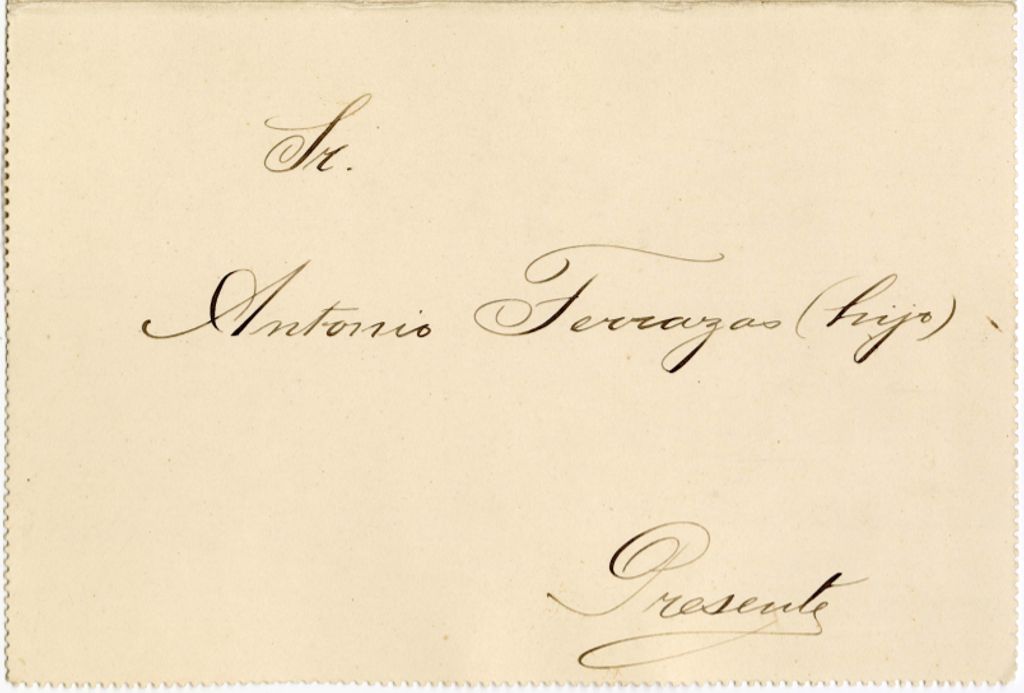 Sr.
Antonio Terrazas (hijo)
Presente